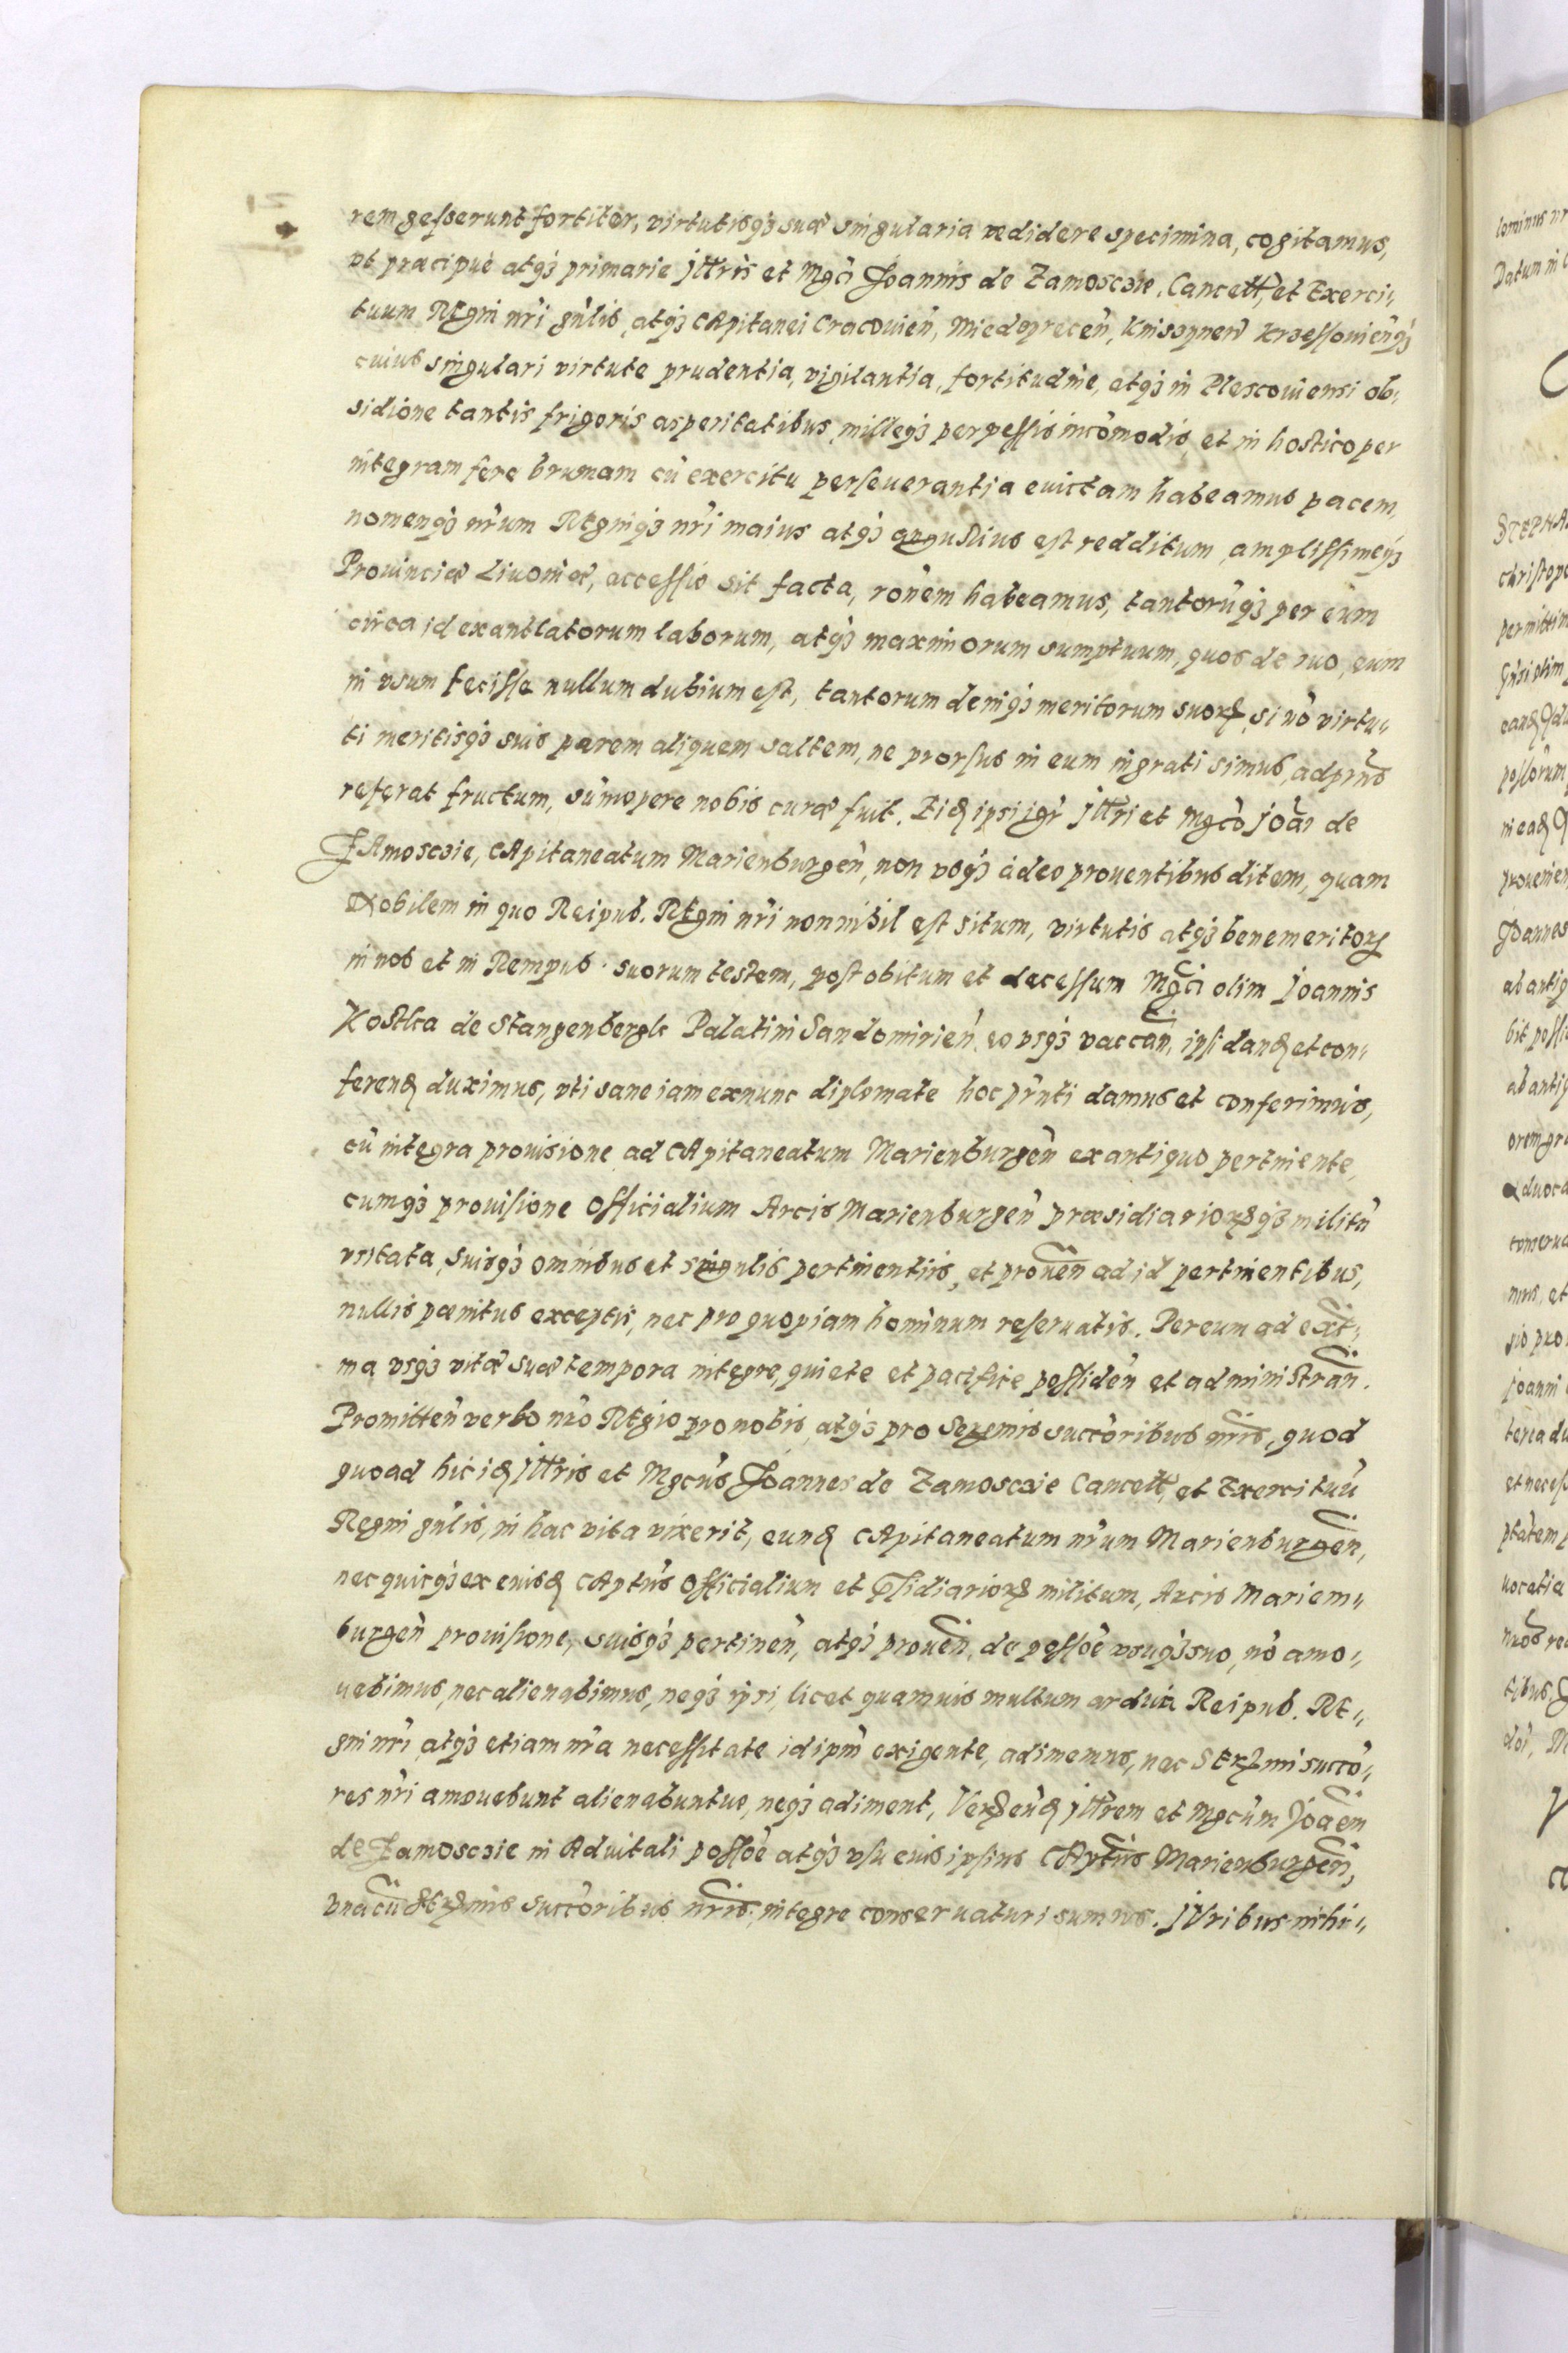 rem gesserunt fortiter, virtutisqꝫ suæ singularia rædidere specimina, cogitamus,
vt præcipuè atqꝫ primarie Jllris et Mgci Joannis de Zamosczie, Cancell, et Exerci„
tuum REgni nri gnlis, atqꝫ CApitanei Cracovień, Miedzyrecen, Knisszynen Krzessouienqꝫ
cuius singulari virtute prudentia, vigilantia, fortitudine, atqꝫ in Plescouiensi ob„
sidione tantis frigoris asperitatibus, milleqꝫ perpessis incõmodis, et in hostico per
integram fere brumam cũ exercitu perseuerantia euictam habeamus pacem,
nomenqꝫ nrum REgniqꝫ nri maius atqꝫ angustius est redditum, amplissimęqꝫ
Prouinciæ Liuoniæ, accessio sit facta, ronem habeamus, tantorũqꝫ per eum
circa id exantlatorum laborum, atqꝫ maximorum sumptuum, quos de suo, eum
in vsum fecisse nullum dubium est, tantorum deniqꝫ meritorum suorꝝ, si nõ virtu„
ti meritisqꝫ suis parem aliquem saltem, ne prorsus in eum ingrati simus, ad prns
referat fructum, sũmopere nobis curæ fuit. Eiđ ipsi igr Jllri et Mgco Joãi de
ZAmosczie, CApitaneatum Marienburgeñ, non vsqꝫ adeo prouentibus ditem, quam
Nobilem in quo Reipub. REgni nri nonnihil est situm, virtutis atqꝫ benemeritorꝝ
in nos et in Rempub. suorum testem, post obitum et decessum Mgci olim Joannis
Kostka de Stangenbergk Palatini Sandomirień, eo vsqꝫ vaccañ, ipsi danđ et con„
ferenđ duximus, vti sane iam exnunc diplomate hoc prnti damus et conferimus,
cũ integra prouisione ad CApitaneatum Marienburgeñ ex antiquo pertinente,
cumqꝫ prouisione Officialium Arcis Marienburgeñ præsidiariorꝝqꝫ militũ
vsitata, suisqꝫ omnibus et singulis pertinentiis, et proueñ ad id pertinentibus,
nullis pænitus exceptis, nec pro quopiam hominum reseruatis. Per eum ad ext„
ma vsqꝫ vitæ suæ tempora integre, quiete et pacifice possideñ et administrañ.
Promitteñ verbo nro REgio pro nobis, atqꝫ pro Serꝫmis succoribus nris, quod
quoad hic iđ Jllris et Mgcus Joannes de Zamosczie Cancell, et Exercituũ
Regni gnlis, in hac vita vixerit, eunđ CApitaneatum nrum Marienburgeñ,
nec quicqꝫ ex euisđ CAptus Officialium et Psidiariorꝝ militum, Arcis Mariem„
burgeñ prouisione, suisqꝫ pertineñ, atqꝫ proueñ, de possõe vsuqꝫ suo, nõ amo„
uebimus, nec alienabimus, neqꝫ ipsi, licet quamuis multum ardua Reipub. RE„
gni nri atqꝫ etiam nra necessitate id ipm exigente, adimemus, nec SErꝫmi succo„
res nri amouebunt alienabuntue, neqꝫ adiment, Verꝝ euđ Jllrem et Mgcum Joãem
de Zamosczie in Aduitali possõe atqꝫ vsu euis ipsius CAptus Marienburgeñ,
vna cũ SErꝫmis succoribus nris, integre conseruaturi sumus. JVribus nihi„